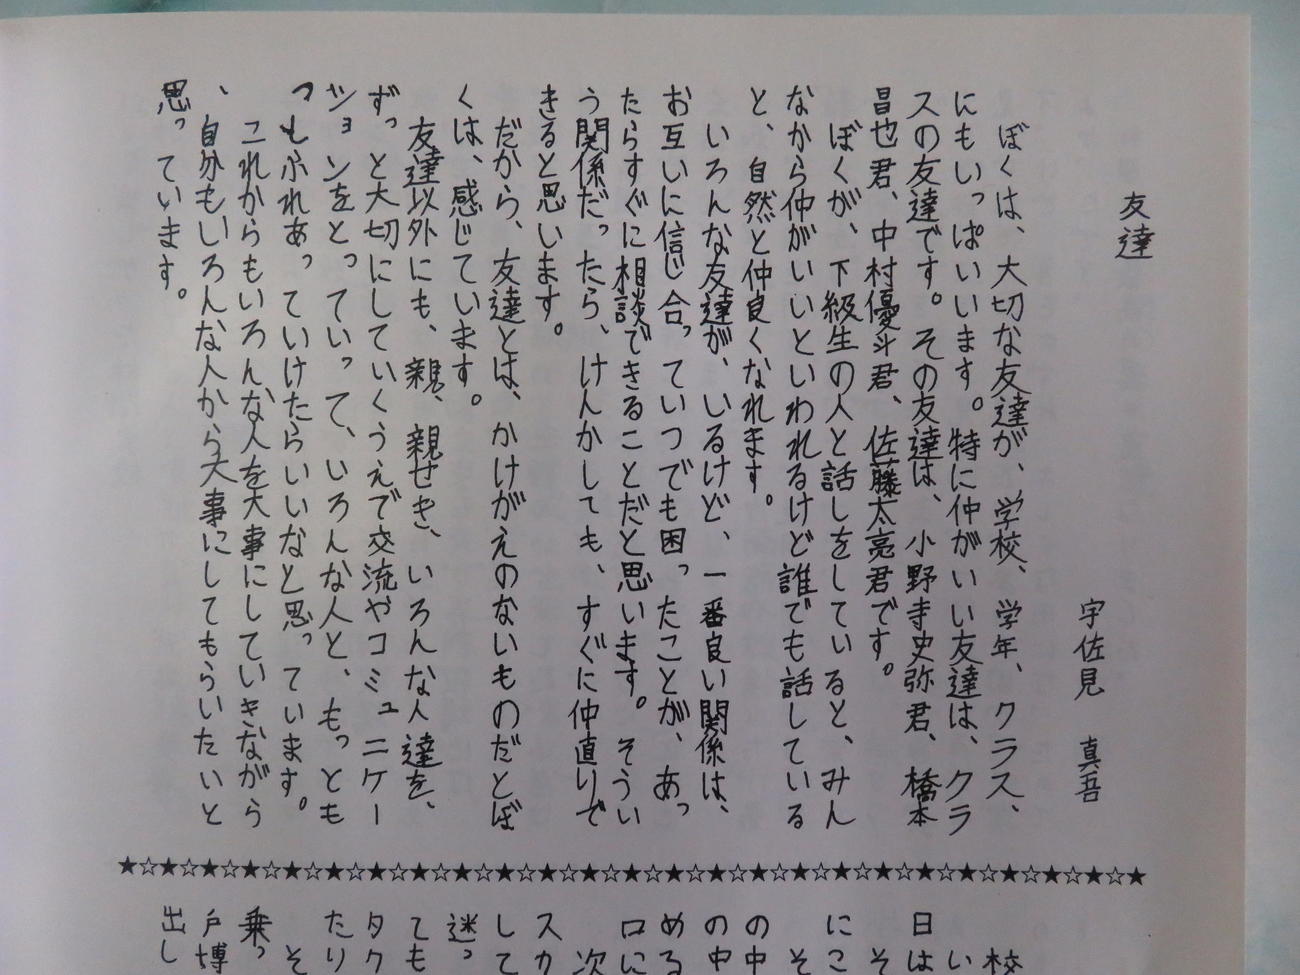 友達
宇佐見 真吾
ぼくは、大切な友達が、学校、学年、クラス、
にもいっぱいいます。特に仲がいい友達は、クラ
スの友達です。その友達は、小野寺史弥君、橋本
昌也君、中村優斗君、佐藤太亮君です。
ぼくが、下級生の人と話しをしていると、みん
なから仲がいいといわれるけど誰でも話している
と、自然と仲良くなれます。
いろんな友達が、いるけど、一番良い関係は、
お互いに信じ合っていつでも困ったことが、あっ
たらすぐに相談できることだと思います。そうい
う関係だったら、けんかしても、すぐに仲直りで
きると思います。
だから、友達とは、かけがえのないものだとぼ
くは、感じています。
友達以外にも、親、親せき、いろんな人達を、
ずっと大切にしていくうえで交流やコミュニケー
ションをとっていって、いろんな人と、もっとも
っもふれあっていけたらいいなと思っています。
これからもいろんな人を大事にしていきながら
、自分もいろんな人から大事にしてもらいたいと
思っています。
★☆★☆★☆★☆★☆★☆★☆★☆★☆★☆★☆★☆★☆★☆★☆★☆★☆★☆★☆★☆★☆★☆★☆★☆★
校
い
日は
そ
にこ
そ
の中
の中
める
口に
次
スカ
して
迷っ
ても
タク
たり
そ
乗っ
戸博
出し